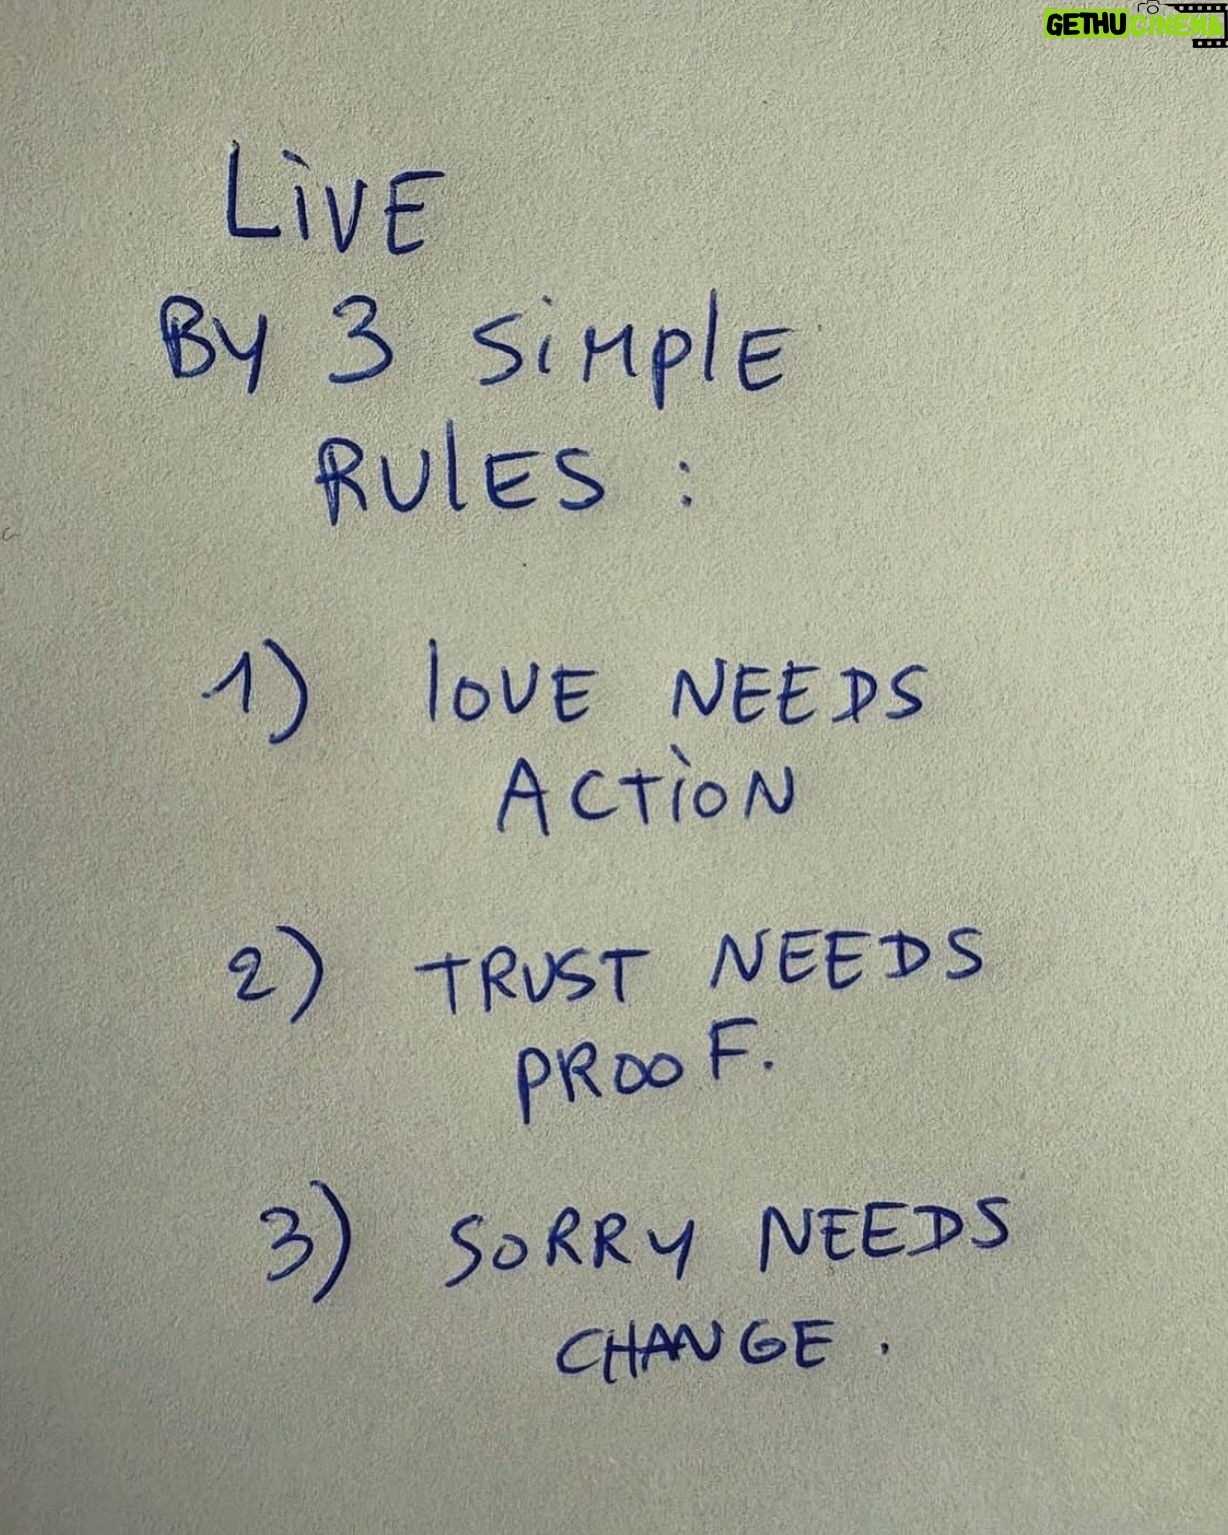 GETHUCINEMA
LiVE
By 3 SiMplE
RUlES :
1) lOVE NEEDS
ACTiON
2) TRUST NEEDS
PROOF.
3) SORRY NEEDS
CHANGE.